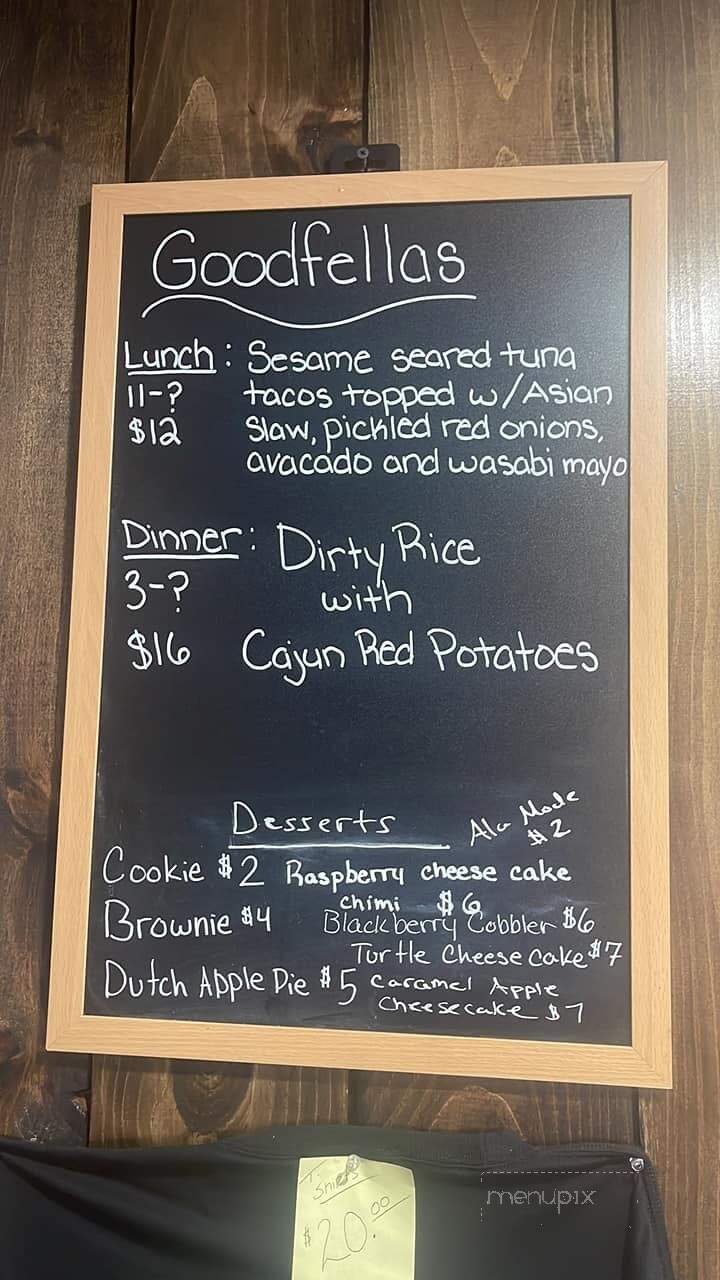 Goodfellas
Lunch: Sesame seared tuna
11-? tacos topped w/Asian
$12 Slaw, pickled red onions,
avacado and wasabi mayo
Dinner: Dirty Rice
3-? with
$16 Cajun Red Potatoes
Desserts
Ala Mode
$2
Cookie $2 Raspberry cheese cake
chimi $6
Brownie $4 Blackberry Cobbler $6
Turtle Cheese cake $7
Dutch Apple Pie $5 Caramel Apple
Cheesecake $7
T-
Shirts
$20.00
menupix